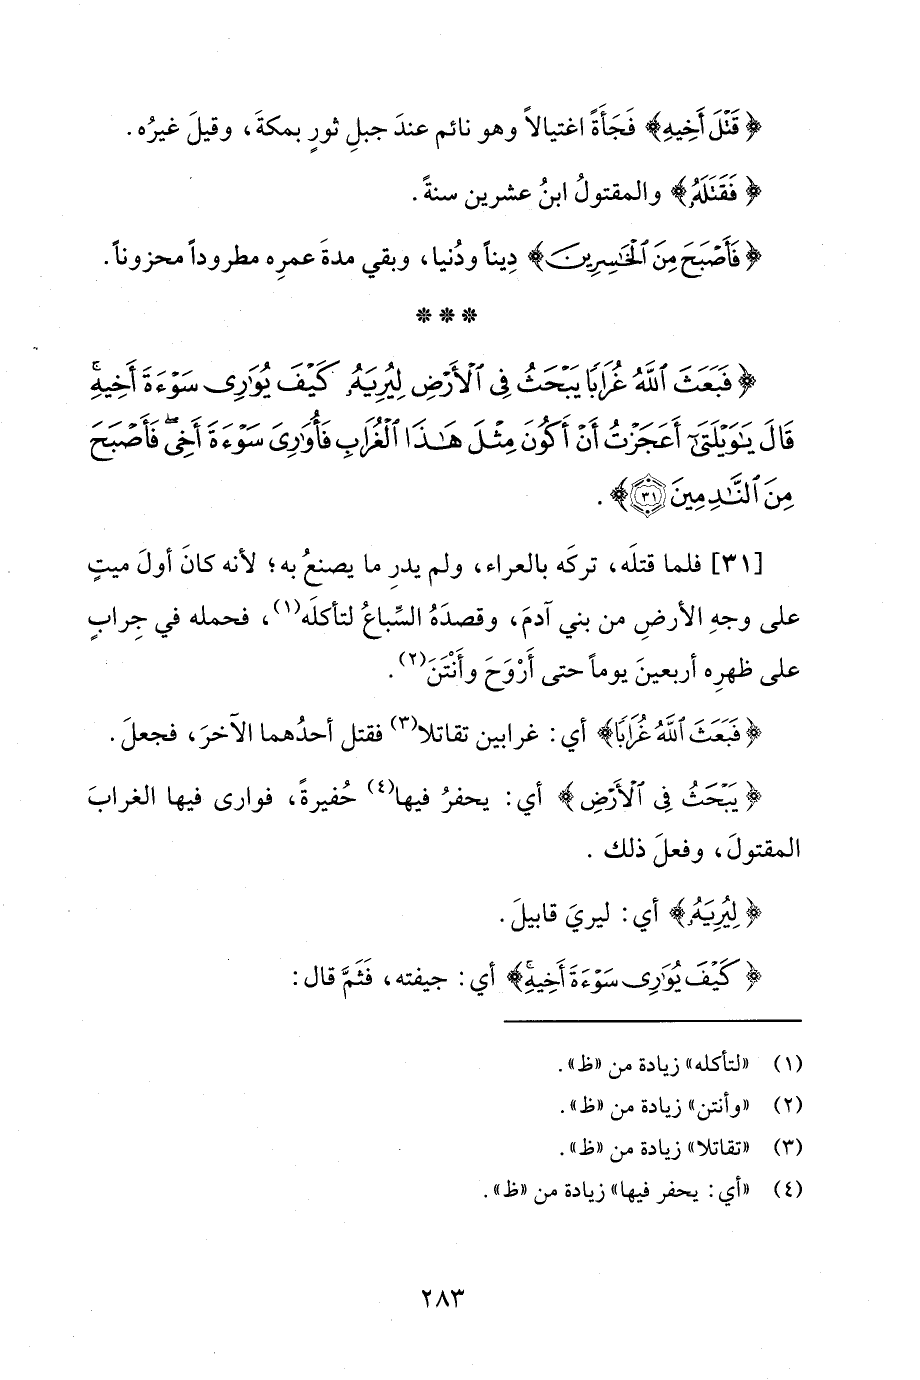 ﴿قَتْلَ أَخِيهِ﴾ فَجَأَةً اغتيالاً وهو نائم عندَ جبلِ ثورٍ بمكةَ، وقيلَ غيرُه.
﴿فَقَتَلَهُ﴾ والمقتولُ ابنُ عشرين سنةً.
﴿فَأَصْبَحَ مِنَ ٱلْخَٰسِرِينَ﴾ دِيناً ودُنيا، وبقي مدةَ عمرِه مطروداً محزوناً.
***
﴿فَبَعَثَ ٱللَّهُ غُرَابًا يَبْحَثُ فِى ٱلْأَرْضِ لِيُرِيَهُۥ كَيْفَ يُوَٰرِى سَوْءَةَ أَخِيهِۚ
قَالَ يَٰوَيْلَتَىٰٓ أَعَجَزْتُ أَنْ أَكُونَ مِثْلَ هَٰذَا ٱلْغُرَابِ فَأُوَٰرِىَ سَوْءَةَ أَخِىۖ فَأَصْبَحَ
مِنَ ٱلنَّٰدِمِينَ ٣١﴾.
[٣١] فلما قتلَه، تركَه بالعراء، ولم يدرِ ما يصنعُ به؛ لأنه كانَ أولَ ميتٍ
على وجهِ الأرضِ من بني آدمَ، وقصدَهُ السِّباعُ لتأكلَه(١)، فحمله في جِرابٍ
على ظهرِه أربعينَ يوماً حتى أَرْوَحَ وأَنْتَنَ(٢).
﴿فَبَعَثَ ٱللَّهُ غُرَابًا﴾ أي: غرابين تقاتلا(٣) فقتل أحدُهما الآخرَ، فجعلَ.
﴿يَبْحَثُ فِى ٱلْأَرْضِ﴾ أي: يحفرُ فيها(٤) حُفيرةً، فوارى فيها الغرابَ
المقتولَ، وفعلَ ذلك.
﴿لِيُرِيَهُۥ﴾ أي: ليريَ قابيلَ.
﴿كَيْفَ يُوَٰرِى سَوْءَةَ أَخِيهِۚ﴾ أي: جيفته، فَثَمَّ قال:
(١) «لتأكله» زيادة من «ظ».
(٢) «وأنتن» زيادة من «ظ».
(٣) «تقاتلا» زيادة من «ظ».
(٤) «أي: يحفر فيها» زيادة من «ظ».
٢٨٣